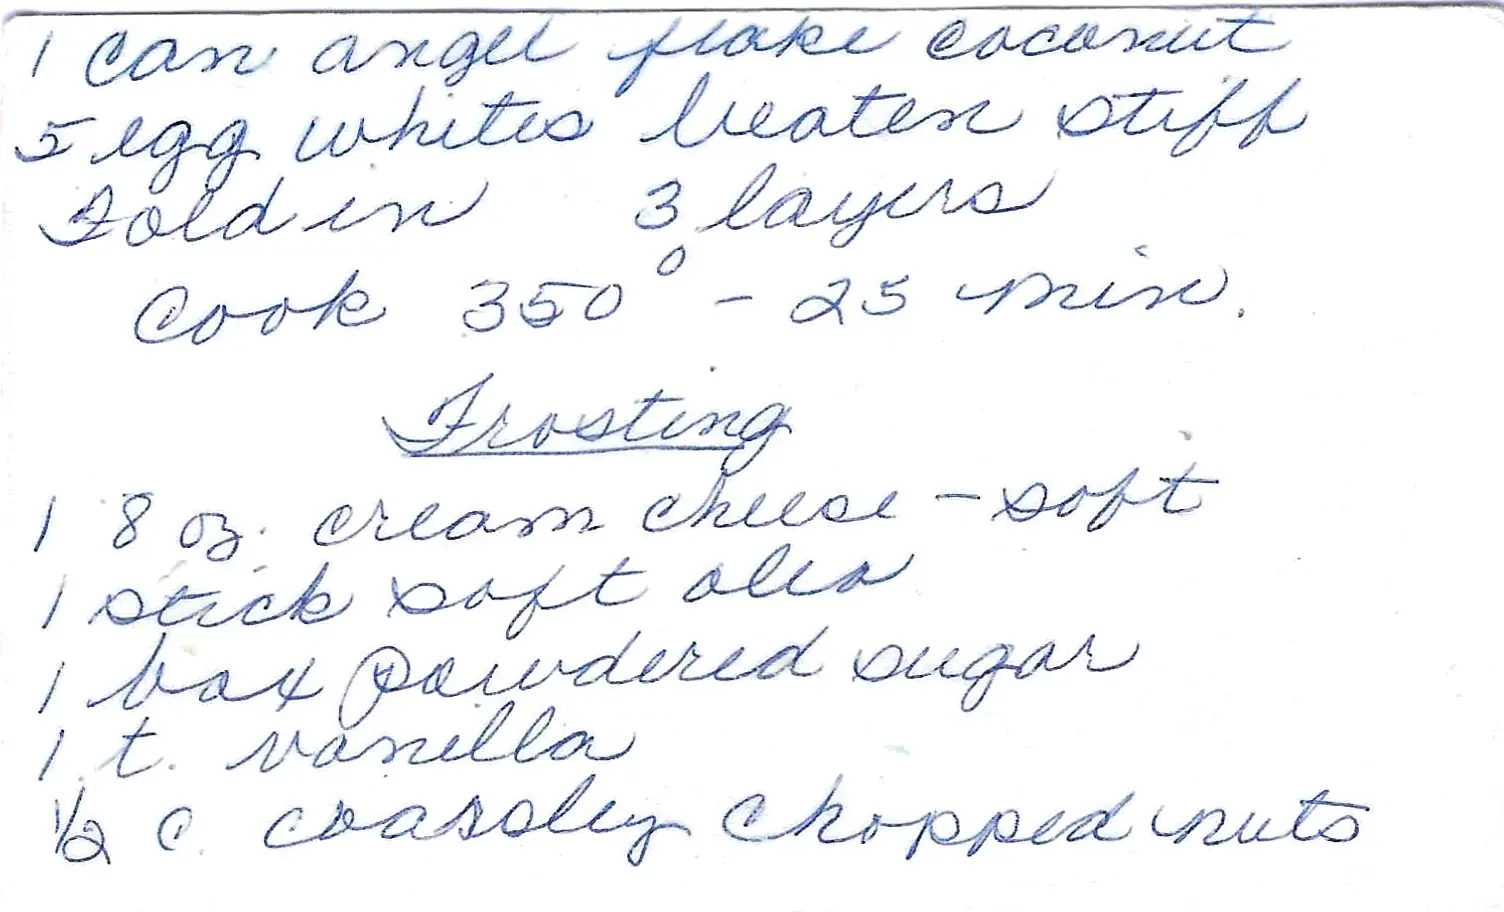 1 can angel flake coconut
5 egg whites beaten stiff
Fold in 3 layers
Cook 350° - 25 min.
Frosting
1 8 oz. cream cheese - soft
1 stick soft oleo
1 box powdered sugar
1 t. vanilla
1/2 c. coarsley chopped nuts